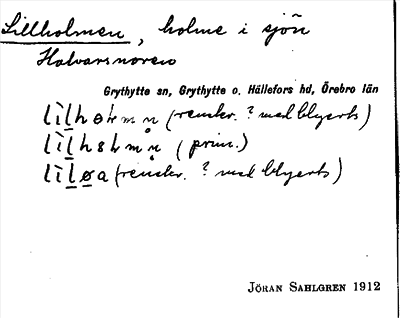 Lillholmen, holme i sjön
Halvarsnoren
Grythytte sn, Grythytte o. Hällefors hd, Örebro län
lìlhɵlmn̥ (renskr. ? med blyerts)
lìlhɵlmn̥ (prim.)
lìløa (renskr. ? med blyerts)
JÖRAN SAHLGREN 1912